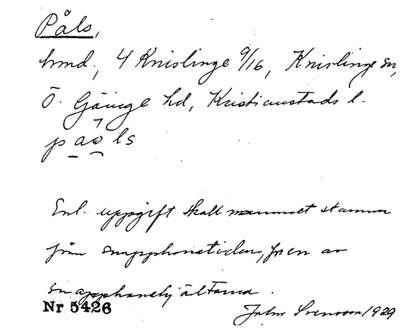 Påls,
hmd, 4 Knislinge 9/16, Knislinge sn,
Ö. Gönge hd, Kristianstads l.
paols
Enl. uppgift skall namnet stamma
från snapphanetiden, från en av
snapphanehjältarna.
Nr 5426
John Svensson 1929